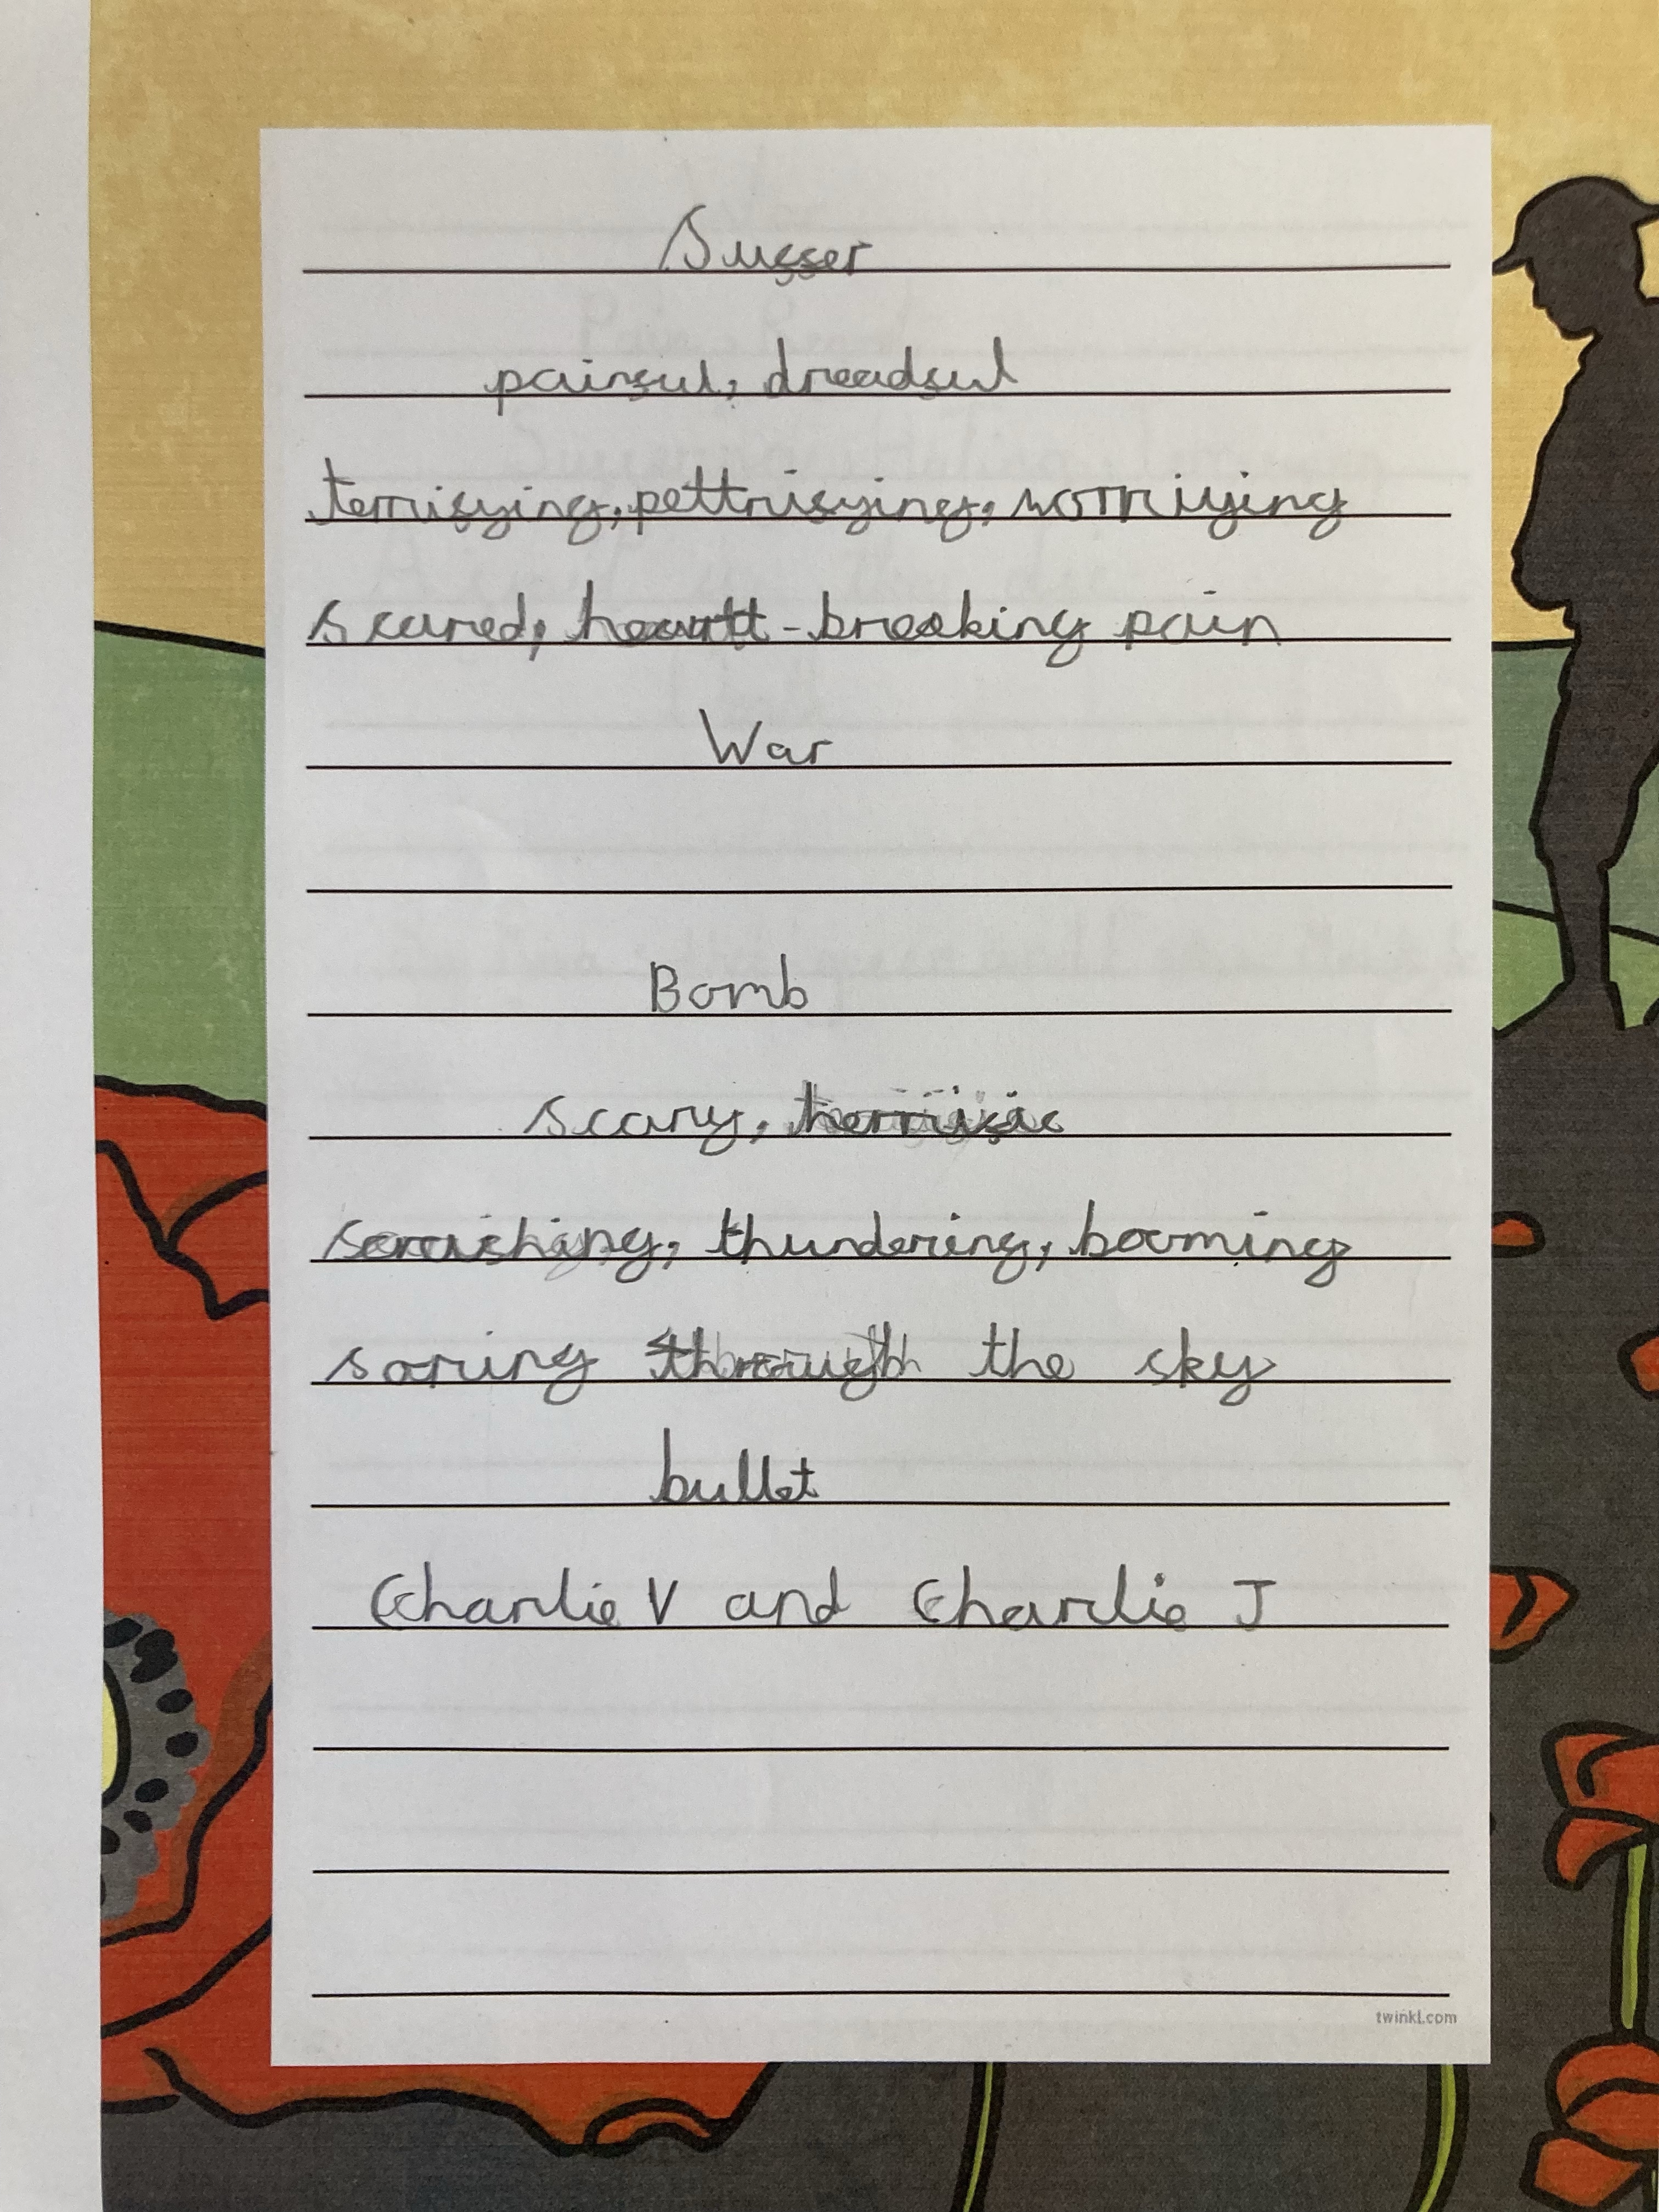 Suffer
painful, dreadful
terrifying, pettrifying, worriying
scared, heartt-breaking pain
War
Bomb
scary, terrific
thundering, booming
soring through the sky
bullet
Charlie V and Charlie J
twinkl.com